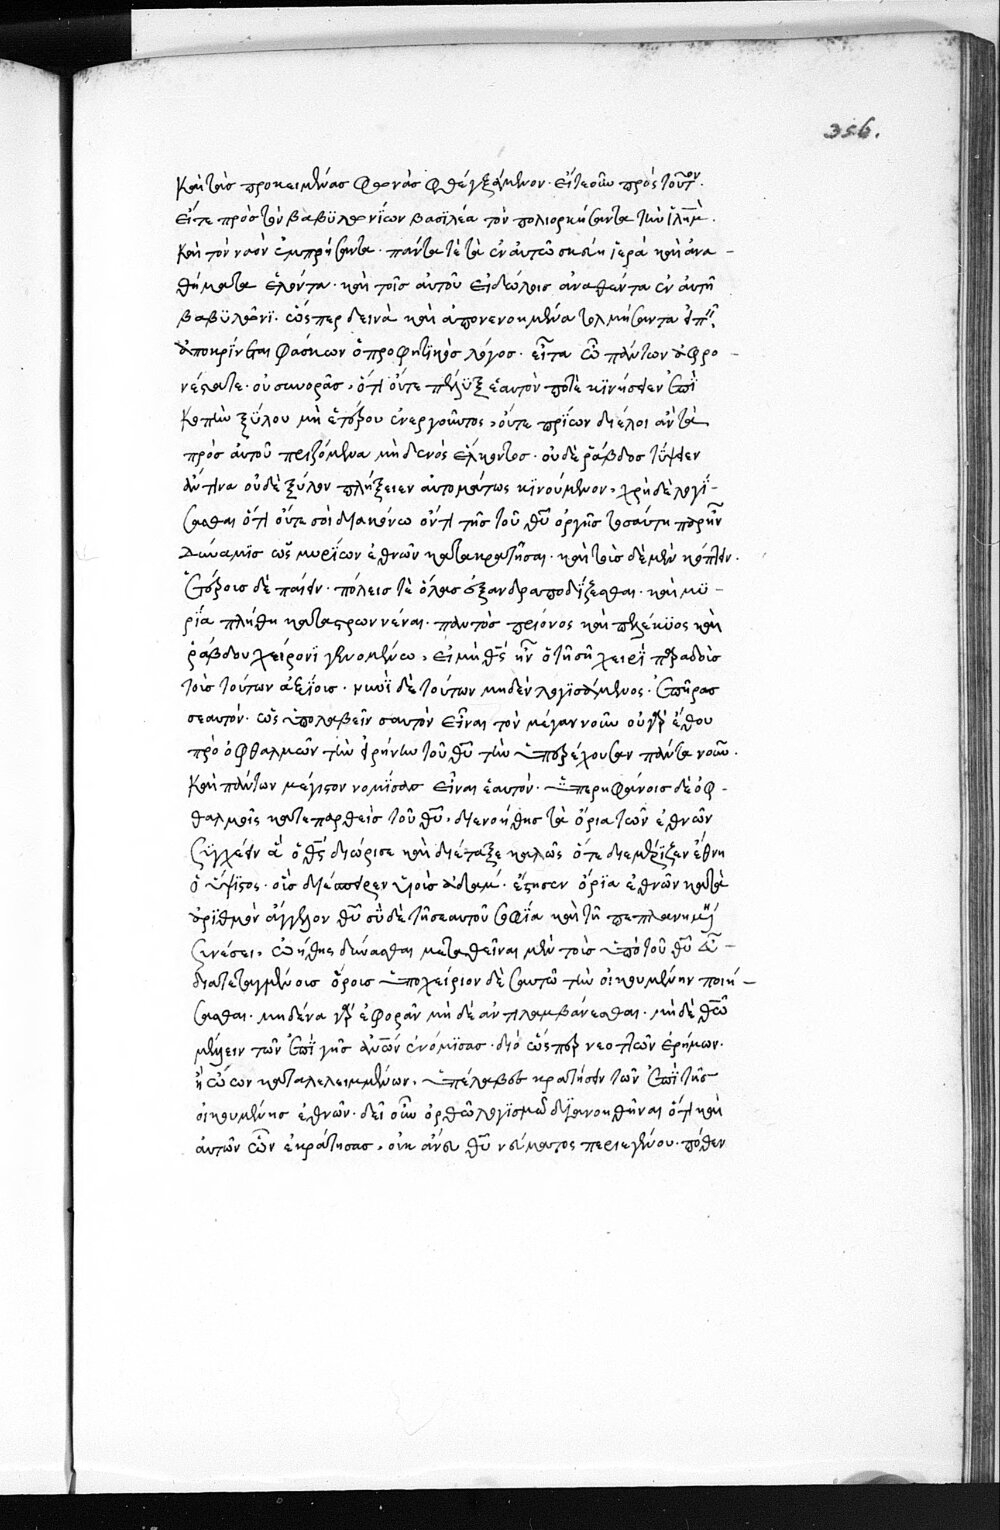 356.
καὶ τὰς προκειμένας φωνὰς φθεγξάμενον. εἴτε οὖν πρὸς τοῦτον.
εἴτε πρὸς τὸν βαβϋλωνίων βασϊλέα τὸν πολιορκήσαντα τὴν ἱλημ.
καὶ τὸν ναὸν ἐμπρήσαντα. πάντα τὲ τὰ ἐν αὐτῶ σκεύη ἱερὰ καὶ ἀνα-
θήματα ἑλόντα. καὶ τοῖς αὐτοῦ εἰδώλοις ἀναθέντα ἐν αὐτῆ
βαβϋλῶνϊ. ὥσπερ δεινὰ καὶ ἀπονενοημένα τολμήσαντα
ἀποκρίνεται φάσκων ὁ προφητϊκὸς λόγος. εἶτα ὦ πάντων ἀφρο-
νέστατε. οὐ συνορᾶς, ὅτι οὔτε πέλϋξ ἑαυτὸν ποτὲ κϊνήσειεν ἐπὶ
κοπὴν ξύλου μὴ ἑτέρου ἐνεργοῦντος, οὔτε πρίων διέλοι ἂν τὰ
πρὸς αὐτοῦ πριζόμενα μηδενὸς ἕλκοντος. οὐδὲ ῥάβδος τύψειεν
ἄν τινα οὐδὲ ξύλον πλήξειεν αὐτομάτως κϊνούμενον, χρὴ δὲ λογΐ-
σασθαι ὅτι οὔτε σοὶ διακόνω ὄντι τῆς τοῦ θυ ὀργῆς τοσαύτη παρῆν
δύναμϊς ὡς μυρίων ἐθνῶν κατακρατῆσαι. καὶ τοὺς δὲ μὲν κόπτειν.
ἑτέροις δὲ παίειν. πόλεις τὲ ὅλας ἐξανδραποδΐζεσθαι. καὶ μϋ-
ρΐα πλήθη καταστρωννύναι. παντὸς πρίονος καὶ πελέκϋος καὶ
ῥάβδου χείρονϊ γενομένω, εἰ μὴ θς ἦν ὁ τῆ σῆ χειρΐ παραδοὺς
τοὺς τούτων ἀξΐους. νυνῒ δὲ τούτων μηδὲν λογϊσάμενος. ἐπῆρας
σεαυτόν. ὡς ὑπολαβεῖν σαυτὸν εἶναι τὸν μέγαν νοῦν οὐ γὰρ ἔθου
πρὸ ὀφθαλμῶν τὴν εἰρήνην τοῦ θυ τὴν ὑπερέχουσαν πάντα νοῦν.
καὶ πάντων μέγιστον νομίσας εἶναι ἑαυτόν. ὑπερηφάνοις δὲ ὀφ-
θαλμοῖς κατεπαρθεὶς τοῦ θυ, διενοήθης τὰ ὅρια τῶν ἐθνῶν
συγχέειν ἃ ὁ θς διώρισε καὶ διέταξε καλῶς ὅτε διεμέριζεν ἔθνη
ὁ ὕψϊστος. οὓς διέσπειρεν υἱοὺς ἀδαμ. ἔστησεν ὅρϊα ἐθνῶν κατὰ
ἀρϊθμὸν ἀγγέλων θυ σὺ δὲ τῆ σεαυτοῦ σοφΐα καὶ τῆ πεπλανημένη
συνέσει, ὠήθης δύνασθαι μεταθεῖναι μὲν τοὺς ὑπὸ τοῦ θυ
διατεταγμένους ὅρους ὑποχείριον δὲ σαυτῶ τὴν οἰκουμένην ποιή-
σασθαι. μηδένα γὰρ ἐφορᾶν μὴ δὲ ἀντιλαμβάνεσθαι. μὴ δὲ θεῶ
μέλειν τῶν ἐπῒ γῆς ἀνων ἐνόμϊσας. διὸ ὥσπερ νεοττῶν ἐρήμων.
ἢ ὠῶν καταλελειμμένων, ὑπέλαβες κρατήσειν τῶν ἐπῒ τῆς
οἰκουμένης ἐθνῶν. δεῖ οὖν ὀρθῶ λογϊσμῶ διανοηθῆναι ὅτι καὶ
αὐτῶν ὧν ἐκράτησας, οὐκ ἄνευ θυ νεύματος περιεγένου. πόθεν